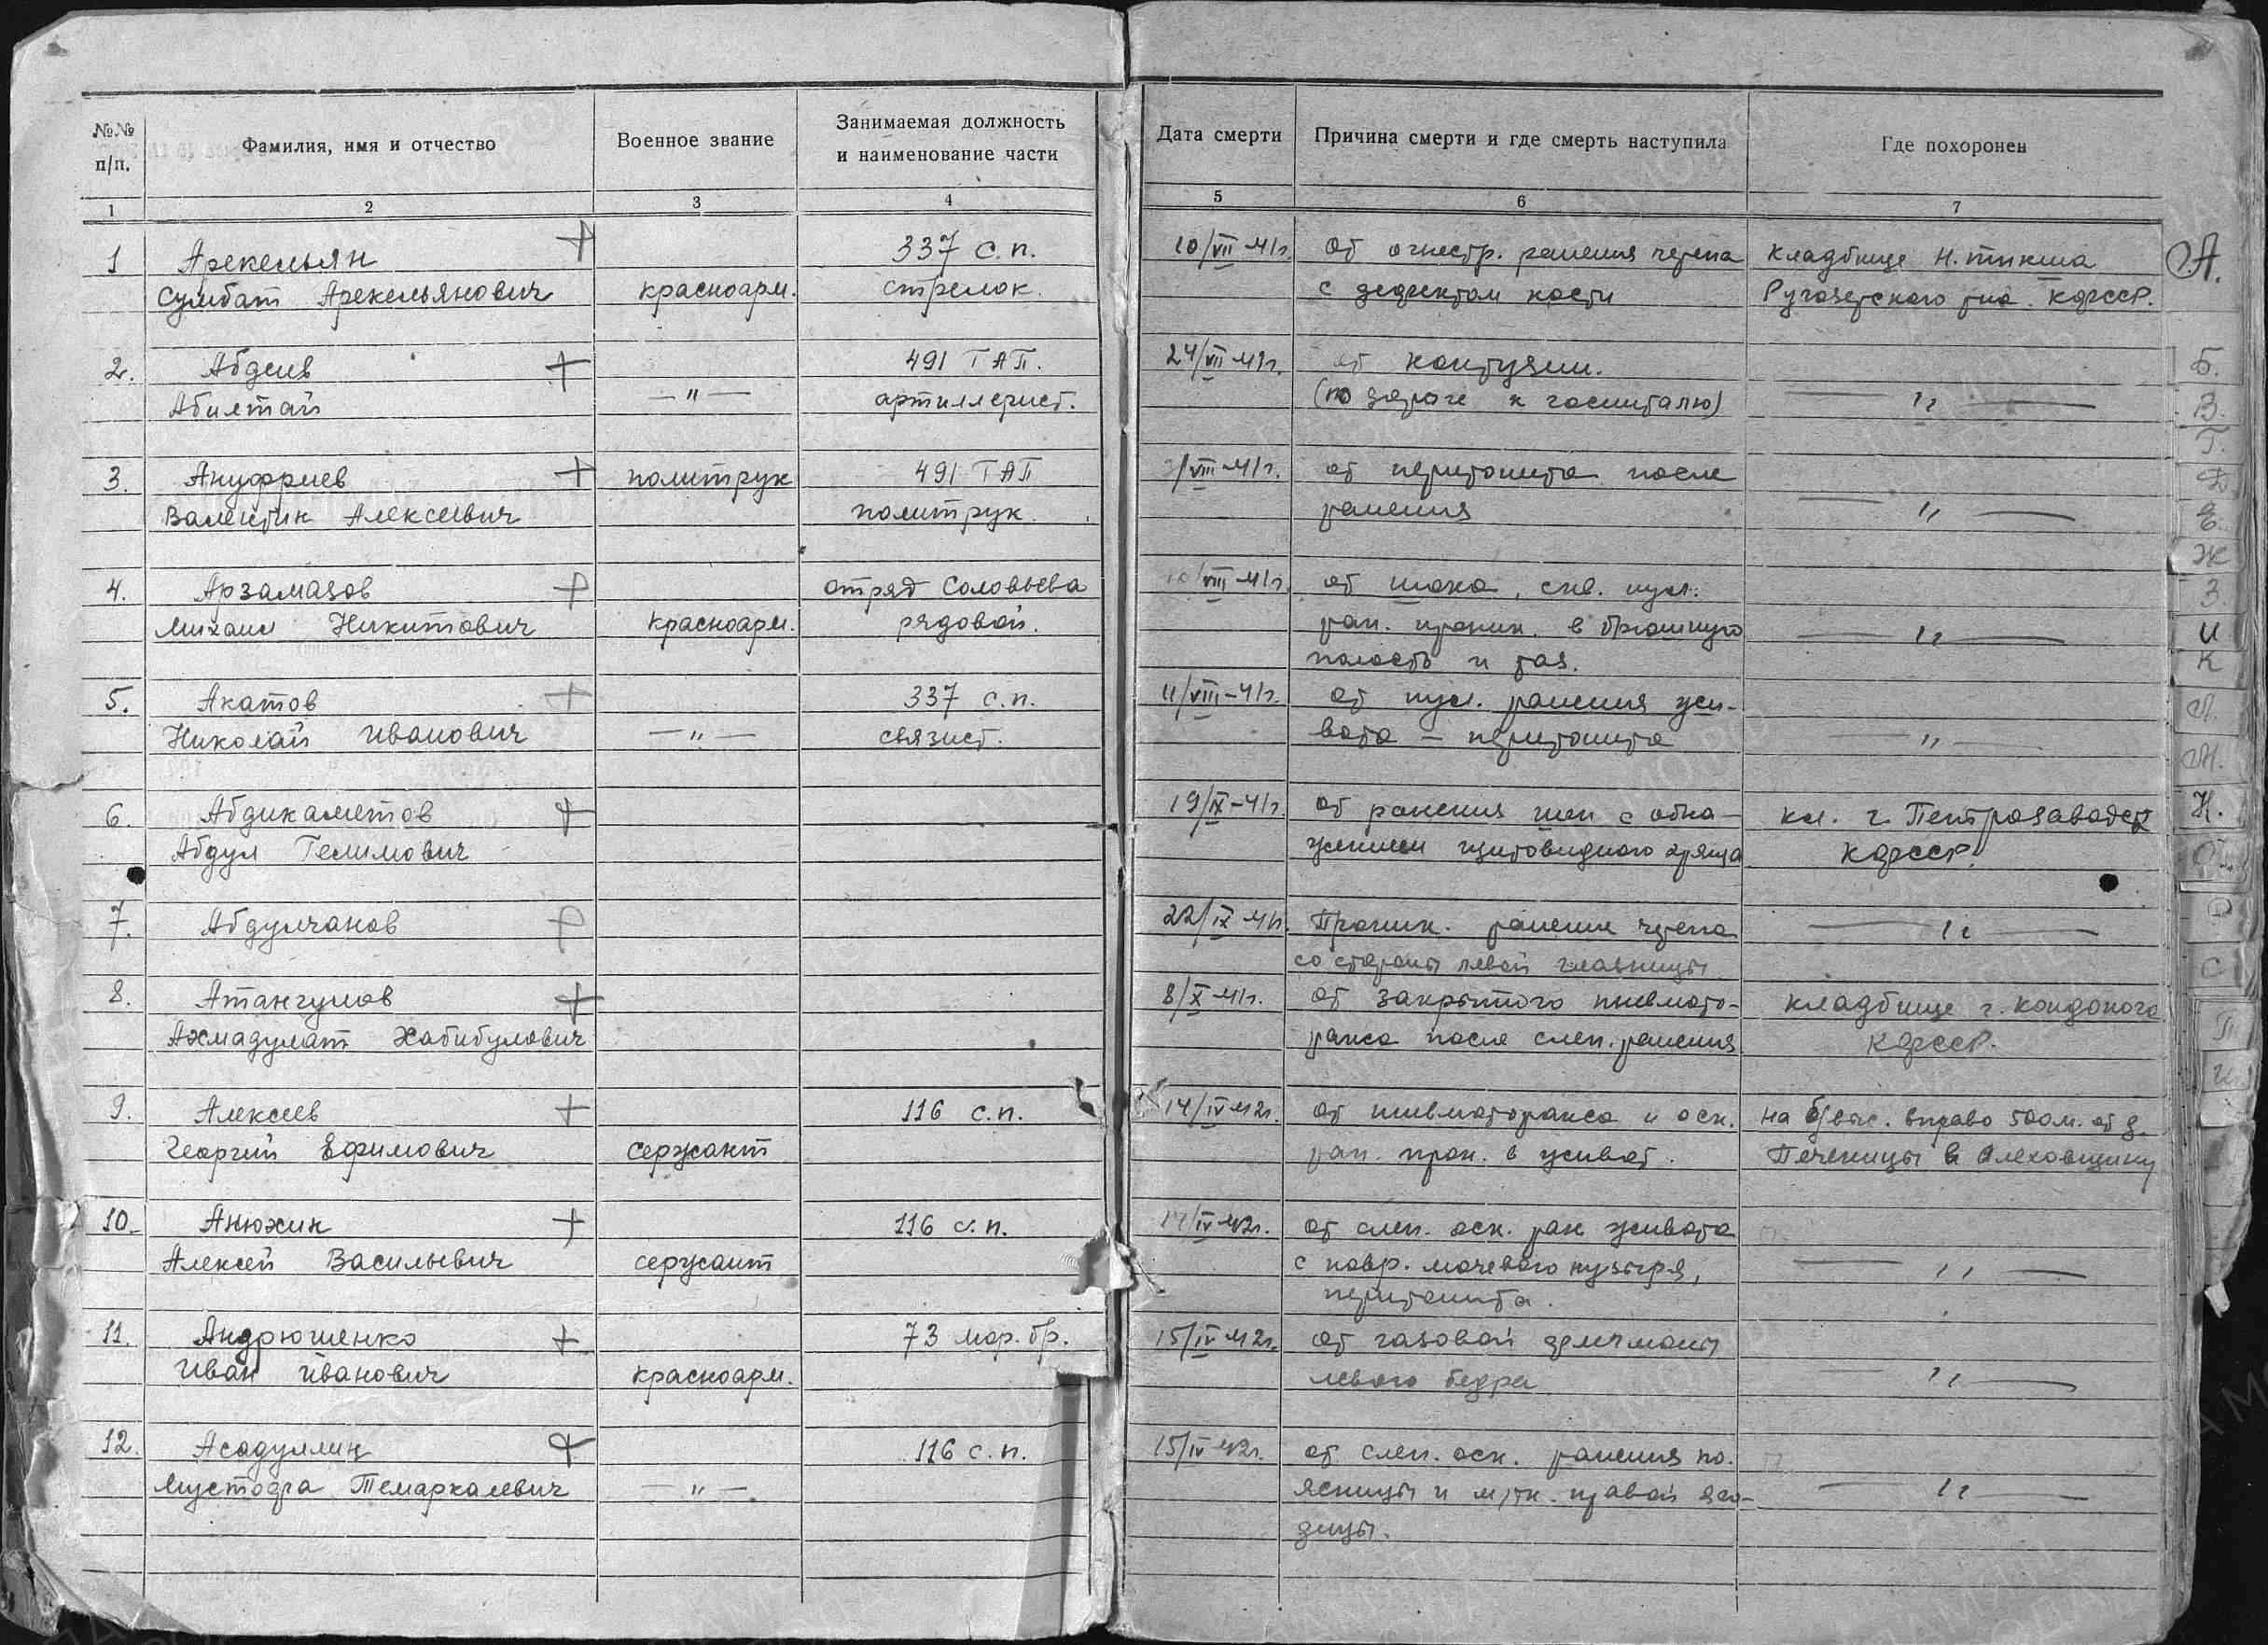 №№ п/п.
Фамилия, имя и отчество
Военное звание
Занимаемая должность и наименование части
Дата смерти
Причина смерти и где смерть наступила
Где похоронен
1 2 3 4 5 6 7
1 Арекельян 337 с.п. 10/VII-41г. от огнестр. ранения черепа кладбище Н. Тикша
Сумбат Арекельянович красноарм. стрелок. с дефектом кости Ругозерского р-на КФССР.
2. Абдеив 491 ГАП. 24/VII-41г. от контузии.
Абилтай —"— артиллерист. (по дороге к госпиталю) —"—
3. Ануфриев политрук 491 ГАП /VIII-41г. от перитонита после
Валентин Алексеевич политрук ранения —"—
4. Арзамазов отряд Соловьева 10/VIII-41г. от шока, сле. пул.
Михаил Никитович красноарм. рядовой. ран. проник. в брюшную —"—
полость и таз.
5. Акатов 337 с.п. 11/VIII-41г. от пул. ранения жи-
Николай Иванович —"— связист. вота — перитонита —"—
6. Абдикаметов 19/IX-41г. от ранения шеи с обна- кл. г. Петрозаводск
Абдул Гелимович жением щитовидного хряща КФССР.
7. Абдулчанов 22/IX 41г. Проник. ранение черепа —"—
со стороны левой глазницы
8. Атангулов 8/X-41г. от закрытого пневмото- кладбище г. Кондопога
Ахмадулат Хабибулович ракса после слеп. ранения КФССР.
9. Алексеев 116 с.п. 14/IV 42г. от пневмоторакса и оск. на вправо 500м. от д.
Георгий Ефимович сержант ран. прон. в живот. Печеницы в Алеховщину
10. Анюхин 116 с.п. 14/IV 42г. от слеп. оск. ран живота
Алексей Васильевич сержант с повр. мочевого пузыря, —"—
перитонита.
11. Андрюшенко 73 мор. бр. 15/IV 42г. от газовой флегмоны
Иван Иванович красноарм. левого бедра —"—
12. Асадуллин 116 с.п. 15/IV 42г. от слеп. оск. ранения по.
Мустафа Темаркалевич —"— ясницы и м/тк. правой яго- —"—
дицы.
А.
Б.
В.
Г.
Д
Е.
Ж
З.
И
К
Л.
М.
Н.
О.
Р
С
Т